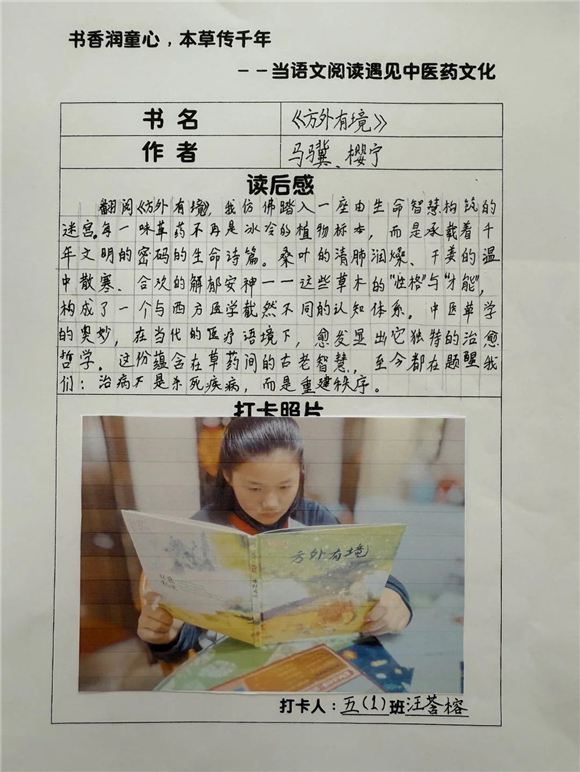 书香润童心，本草传千年
——当语文阅读遇见中医药文化
书名 《方外有境》
作者 马骥、樱宁
读后感
翻阅《方外有境》，我仿佛踏入一座由生命智慧构筑的
迷宫。每一味草药不再是冰冷的植物标本，而是承载着千
年文明的密码的生命诗篇。桑叶的清肺润燥、干姜的温
中散寒、合欢的解郁安神——这些草木的“性格”与“才能”，
构成了一个与西方医学截然不同的认知体系。中医草学
的奥妙，在当代的医疗语境下，愈发显出它独特的治愈
哲学。这份蕴含在草药间的古老智慧，至今都在题醒我
们：治病不是杀死疾病，而是重建秩序。
打卡照片
方外有境
打卡人：五(1)班汪荟榕